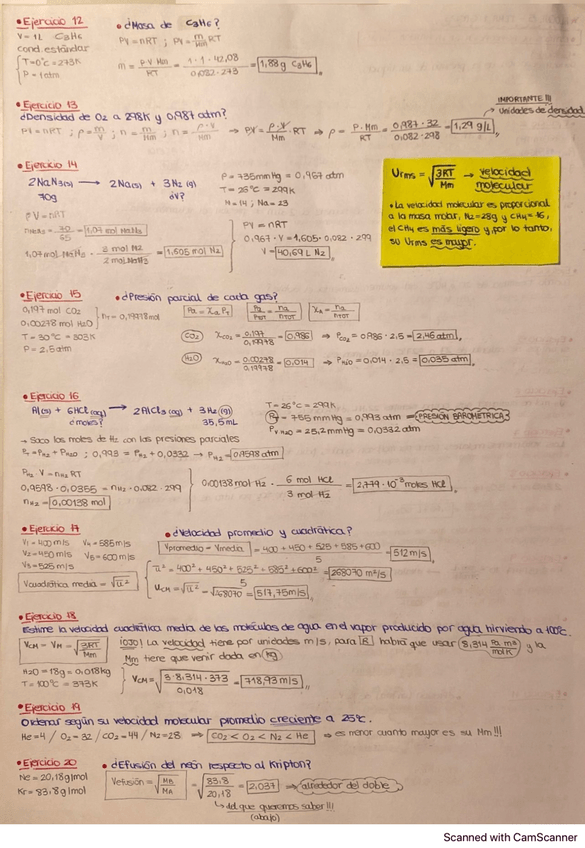 • Ejercicio 12
• ¿Masa de C3H6?
V = 1L C3H6
cond. estándar
T=0°C = 273K
P = 1atm
PV = nRT ; PV = m/Mm RT
m = P·V·Mm/RT = 1·1·42,08/0,082·273 = 1,88g C3H6
• Ejercicio 13
¿Densidad de O2 a 298K y 0,987 atm?
IMPORTANTE !!!
Unidades de densidad
PV = nRT ; ρ = m/V ; n = m/Mm ; n = ρ·V/Mm ⇒ PV = ρ·V/Mm · RT ⇒ ρ = P·Mm/RT = 0,987·32/0,082·298 = 1,29 g/L
• Ejercicio 14
2NaN3(s) → 2Na(s) + 3N2(g)
70g ¿V?
P = 735mmHg = 0,967 atm
T = 26°C = 299K
N = 14 ; Na = 23
PV = nRT
nNaN3 = 70/65 = 1,07 mol NaN3
1,07 mol NaN3 · 3 mol N2/2 mol NaN3 = 1,605 mol N2
PV = nRT
0,967·V = 1,605·0,082·299
V = 40,69 L N2
Urms = √3RT/Mm → velocidad molecular
• La velocidad molecular es proporcional
a la masa molar, N2 = 28g y CH4 = 16,
el CH4 es más ligero y por lo tanto,
su Urms es mayor.
• Ejercicio 15
• ¿Presión parcial de cada gas?
0,197 mol CO2
0,00278 mol H2O
nT = 0,19978mol
T = 30°C = 303K
P = 2,5atm
Pa = Xa PT
Pa/PTOT = na/nTOT
Xa = na/nTOT
CO2 XCO2 = 0,197/0,19978 = 0,986 ⇒ PCO2 = 0,986·2,5 = 2,46 atm
H2O XH2O = 0,00278/0,19978 = 0,014 ⇒ PH2O = 0,014·2,5 = 0,035 atm
• Ejercicio 16
Al(s) + 6HCl(aq) → 2AlCl3(aq) + 3H2(g)
¿moles? 35,5mL
T = 26°C = 299K
PT = 755 mmHg = 0,993 atm → PRESIÓN BAROMÉTRICA
PV H2O = 25,2mmHg = 0,0332 atm
→ Saco las moles de H2 con las presiones parciales
PT = PH2 + PH2O ; 0,993 = PH2 + 0,0332 → PH2 = 0,9598 atm
PH2 · V = nH2 RT
0,9598·0,0355 = nH2·0,082·299
nH2 = 0,00138 mol
0,00138 mol H2 · 6 mol HCl/3 mol H2 = 2,779·10⁻³ moles HCl
• Ejercicio 17
• ¿Velocidad promedio y cuadrática?
V1 = 400 m/s V4 = 585m/s
V2 = 450 m/s V5 = 600 m/s
V3 = 525 m/s
Vpromedio = Vmedia = 400 + 450 + 525 + 585 + 600/5 = 512 m/s
Vcuadrática media = √u²
u² = 400² + 450² + 525² + 585² + 600²/5 = 268070 m²/s
UCM = √u² = √268070 = 517,75m/s
• Ejercicio 18
Estime la velocidad cuadrática media de las moléculas de agua en el vapor producido por agua hirviendo a 100°C.
VCM = VM = √3RT/Mm
¡OJO! La velocidad tiene por unidades m/s, para R habrá que usar 8,314 Pa m³/mol K y la
Mm tiene que venir dada en kg
H2O = 18g = 0,018kg
T = 100°C = 373K
VCM = √3·8,314·373/0,018 = 718,93 m/s
• Ejercicio 19
Ordenar según su velocidad molecular promedio creciente a 25°C.
He = 4 / O2 = 32 / CO2 = 44 / N2 = 28 ⇒ CO2 < O2 < N2 < He ⇒ es menor cuanto mayor es su Mm !!!
• Ejercicio 20
• ¿Efusión del neón respecto al Kripton?
Ne = 20,18g/mol
Kr = 83,8g/mol
Vefusión = √MB/MA = √83,8/20,18 = 2,037 ⇒ alrededor del doble
↳ del que queremos saber!!!
(abajo)
Scanned with CamScanner